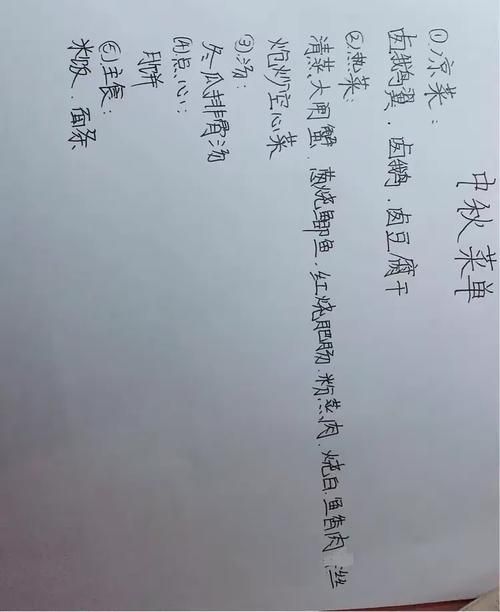 中秋菜单
①凉菜：
卤鹅翼．卤鹅．卤豆腐干
②热菜：
清蒸大闸蟹．葱烧鲫鱼．红烧肥肠．粉蒸肉．烧白．鱼香肉丝
炝炒空心菜
③汤：
冬瓜排骨汤
④点心：
月饼
⑤主食：
米饭．面条